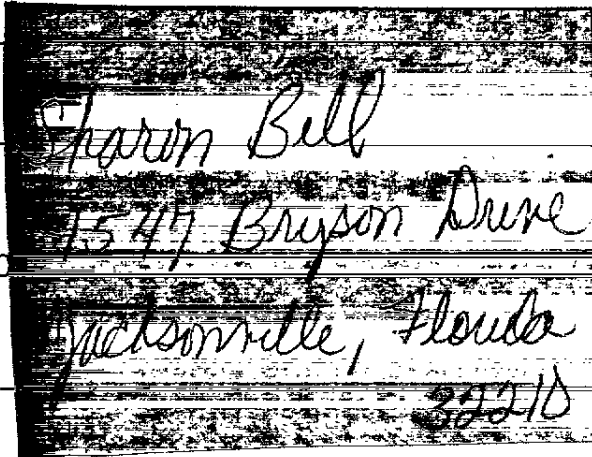 Sharon Bell
1547 Bryson Drive
Jacksonville, Florida
32210